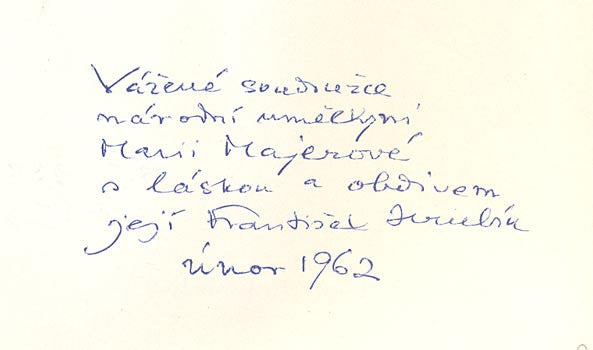 Vážené soudružce
národní umělkyni
Marii Majerové
s láskou a obdivem
její František Hrubín
únor 1962